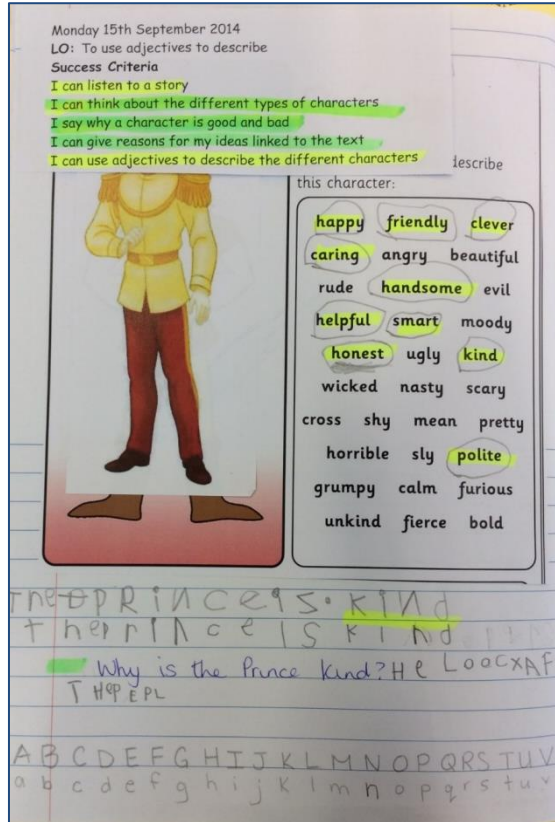 Monday 15th September 2014
LO: To use adjectives to describe
Success Criteria
I can listen to a story
I can think about the different types of characters
I say why a character is good and bad
I can give reasons for my ideas linked to the text
I can use adjectives to describe the different characters
describe
this character:
happy friendly clever
caring angry beautiful
rude handsome evil
helpful smart moody
honest ugly kind
wicked nasty scary
cross shy mean pretty
horrible sly polite
grumpy calm furious
unkind fierce bold
The PRiNCe is. kiNd
theprince is kind
Why is the Prince kind? He LOOCXAF
T HepEPL
A B C D E F G H I J K L M N O P Q R S T U V
a b c d e f g h i j k l m n o p q r s t u v